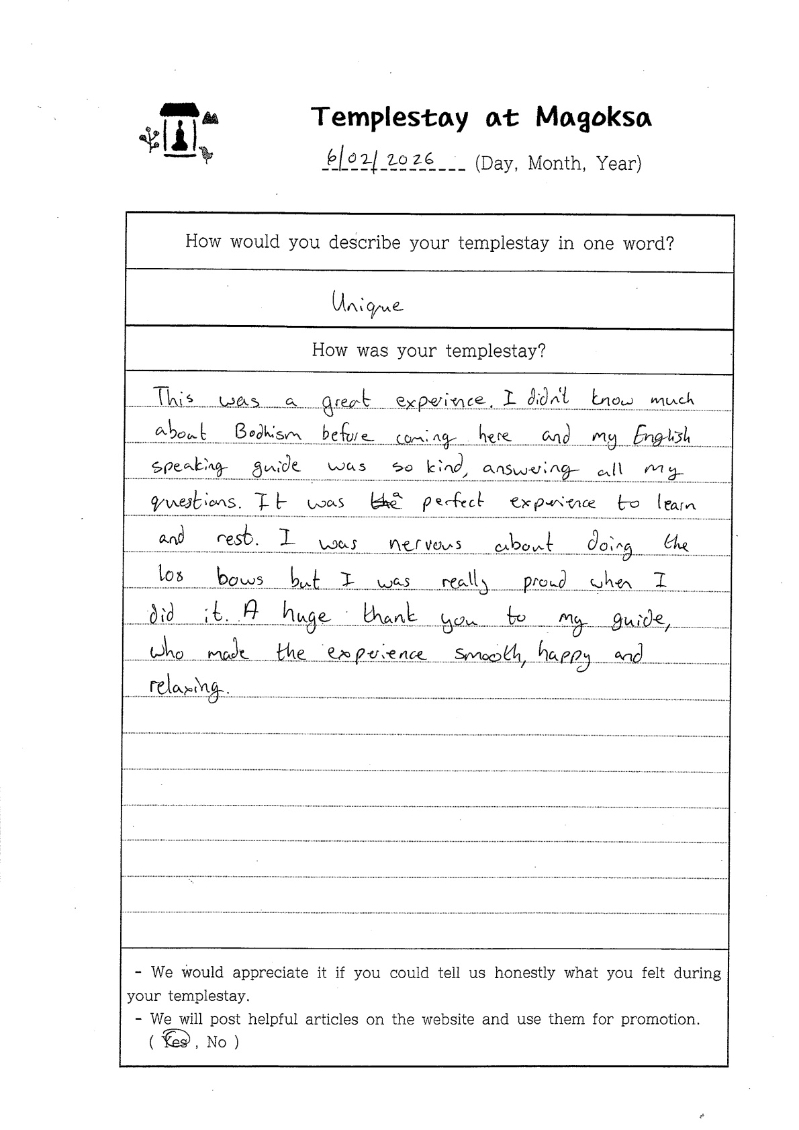 Templestay at Magoksa
6/02/2026 (Day, Month, Year)
How would you describe your templestay in one word?
Unique
How was your templestay?
This was a great experience. I didn't know much
about Bodhism before coming here and my English
speaking guide was so kind, answering all my
questions. It was a perfect experience to learn
and rest. I was nervous about doing the
108 bows but I was really proud when I
did it. A huge thank you to my guide,
who made the experience smooth, happy and
relaxing.
- We would appreciate it if you could tell us honestly what you felt during
your templestay.
- We will post helpful articles on the website and use them for promotion.
( Yes , No )